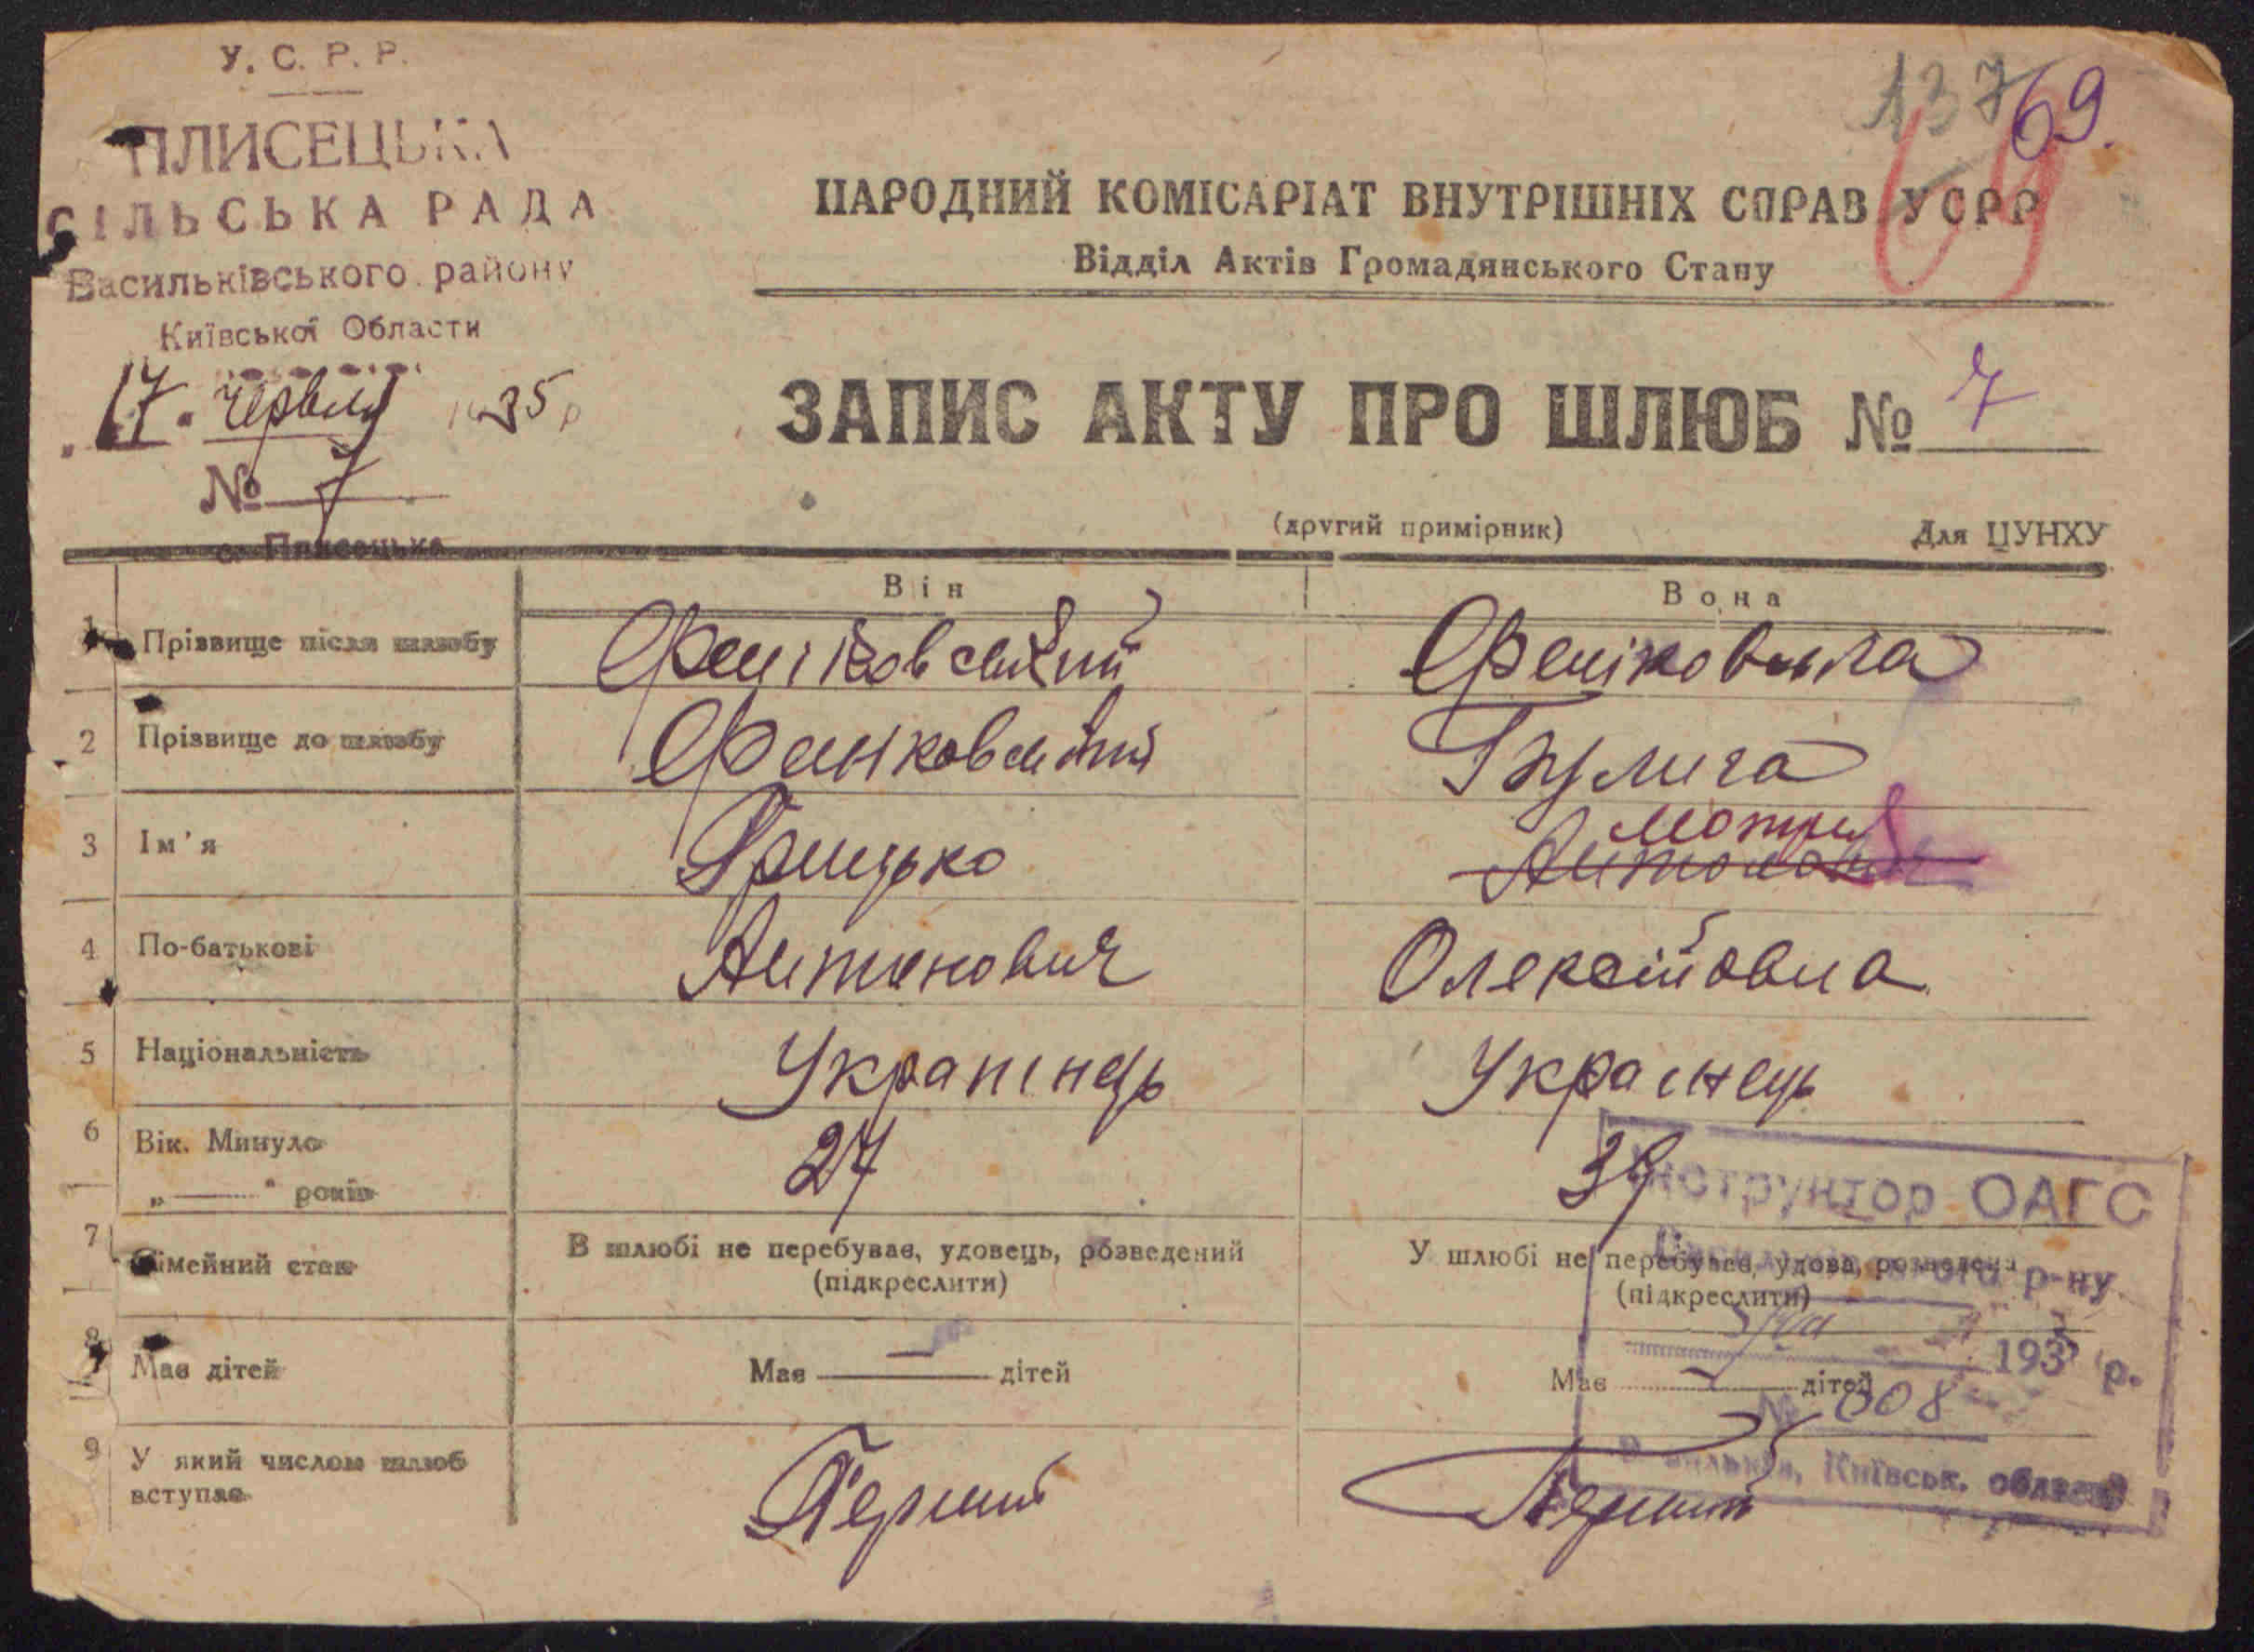 У. С. Р. Р.
ПЛИСЕЦЬКА
СІЛЬСЬКА РАДА
Васильківського району
Київської Области
17. червня 1935 р
№ 7
с. Плисецьке
137 69.
69
НАРОДНИЙ КОМІСАРІАТ ВНУТРІШНІХ СПРАВ УСРР
Відділ Актів Громадянського Стану
ЗАПИС АКТУ ПРО ШЛЮБ № 7
(другий примірник) Для ЦУНХУ
Він Вона
1 Прізвище після шлюбу
2 Прізвище до шлюбу
3 Ім'я Грицько Мотря
4 По-батькові Антонович Олексіївна
5 Національність Українець Українець
6 Вік. Минуло 27 39
„ " років
7 Сімейний стан В шлюбі не перебував, удовець, розведений У шлюбі не перебувала, удова, розведена
(підкреслити) (підкреслити)
8 Має дітей Має — дітей Має — дітей
9 У який числом шлюб вступає Перший Перший
Інструктор ОАГС
р-ну
193 р.
№ 608
Київськ. области